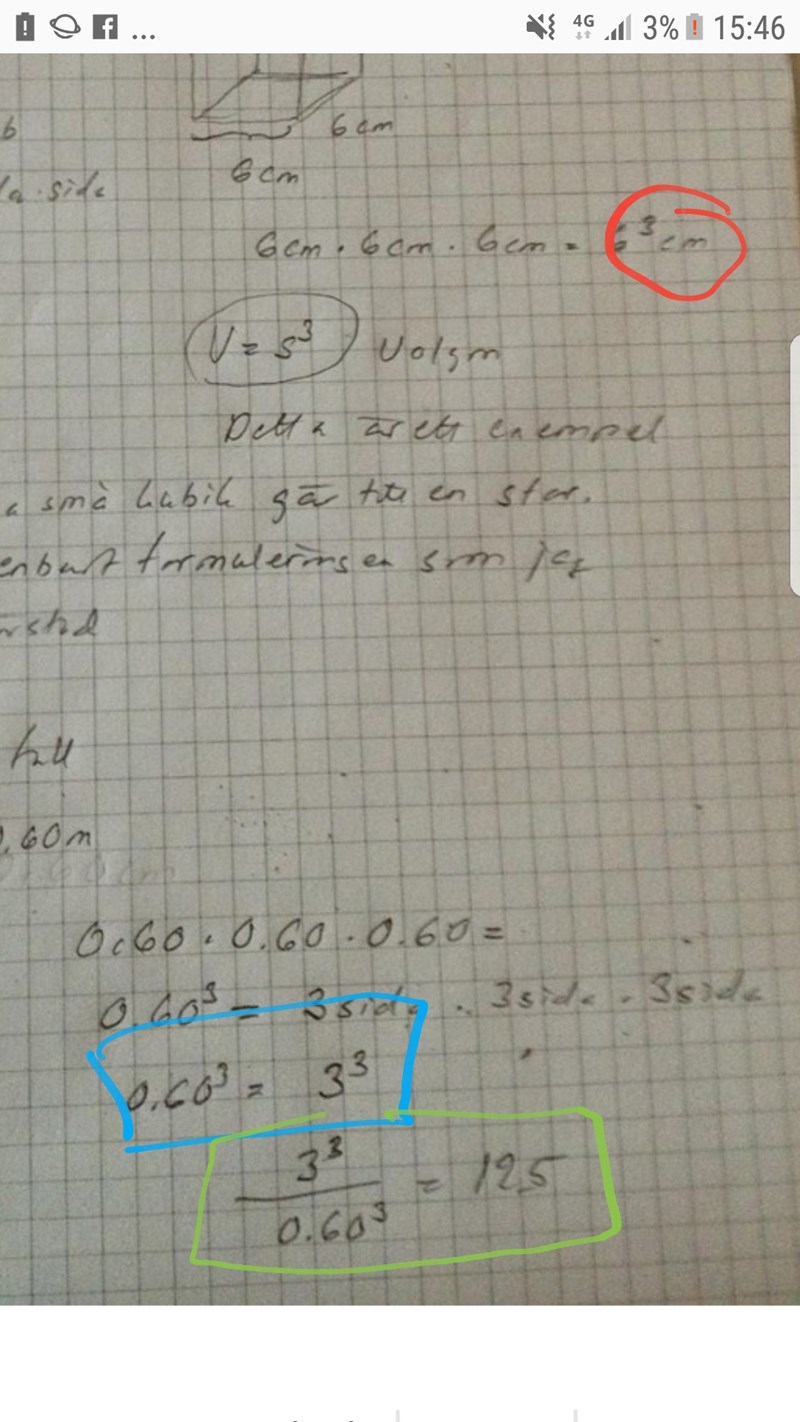 ... 4G 3% 15:46
b
6cm
la side
6cm
6cm · 6cm · 6cm = 6³cm
V = s³ Volym
Detta är ett exempel
a små kubik går till en stor.
enbart formuleringen som jag
rstod
fall
0.60m
0.60 · 0.60 · 0.60 =
0.60³ = 3side · 3side · 3side
0.60³ = 3³
3³
0.60³
= 125